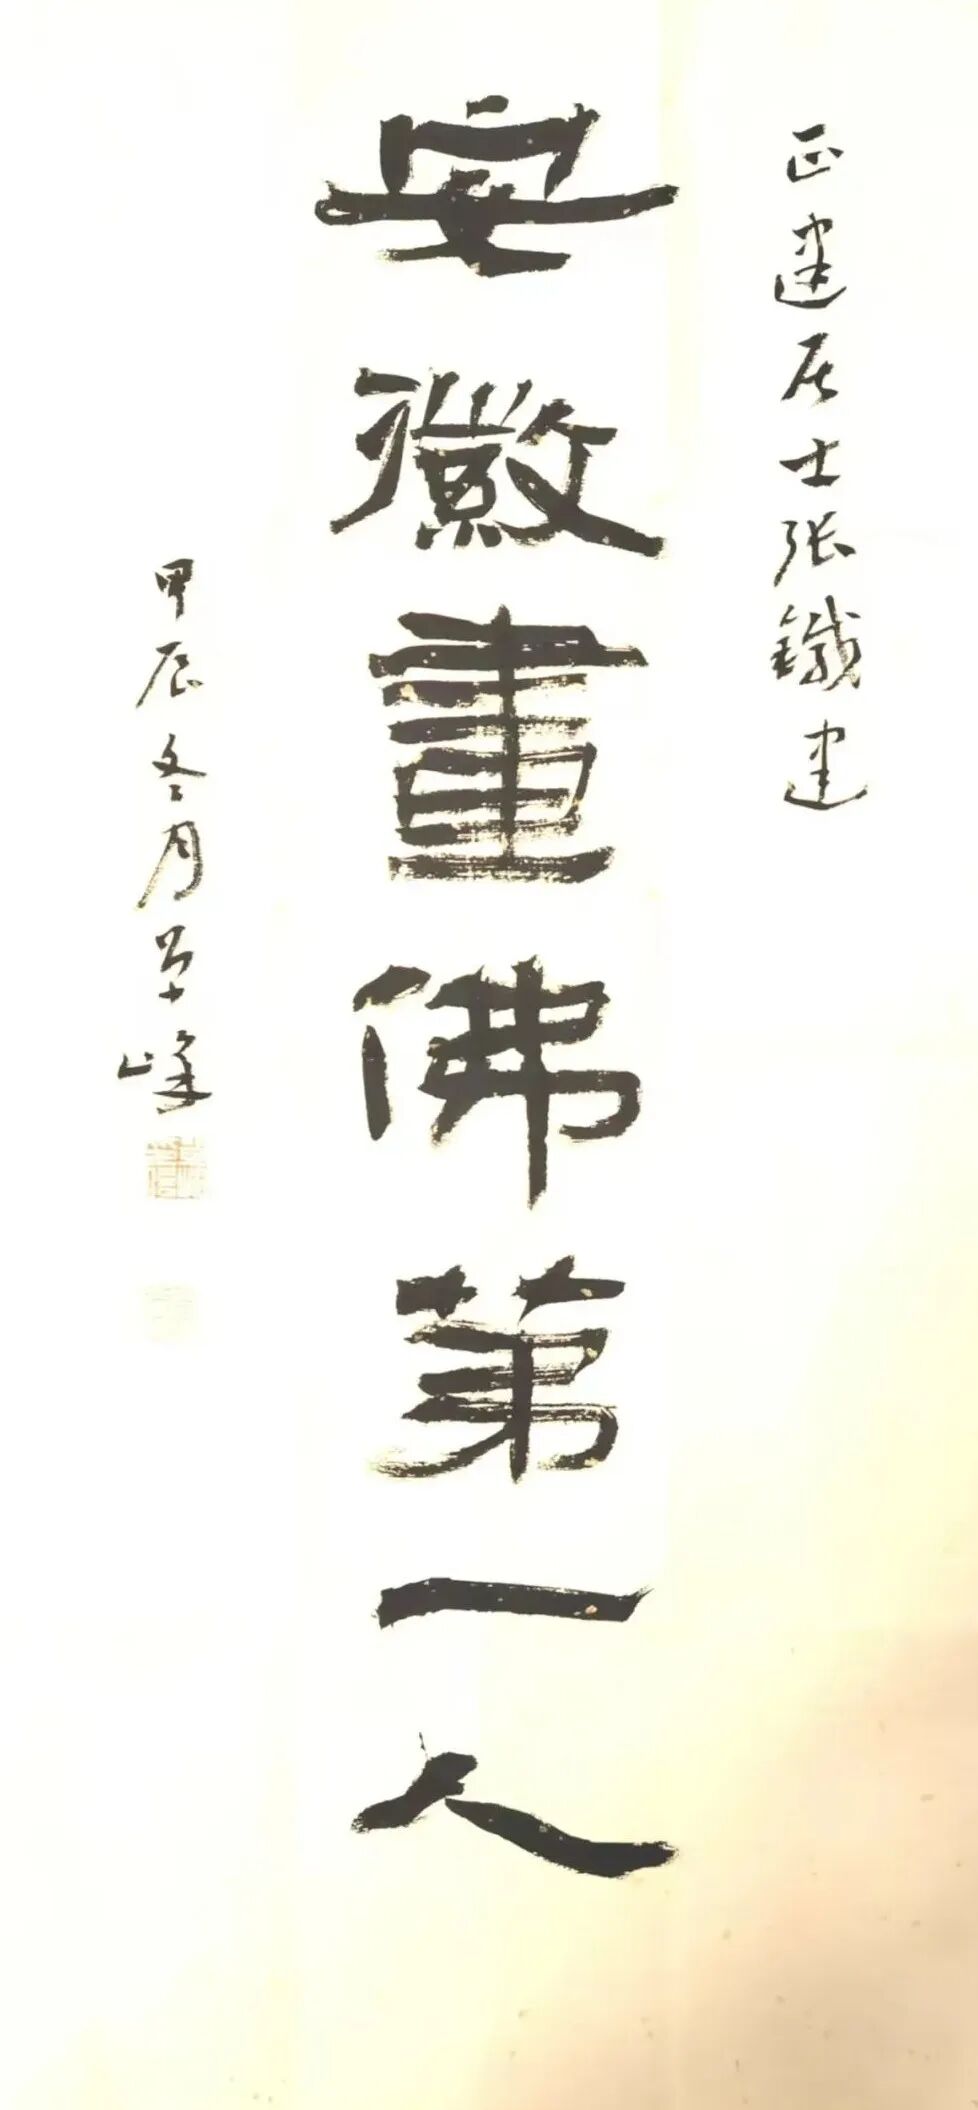 正達居士张鐵建
安徽畫佛第一人
甲辰冬月峰